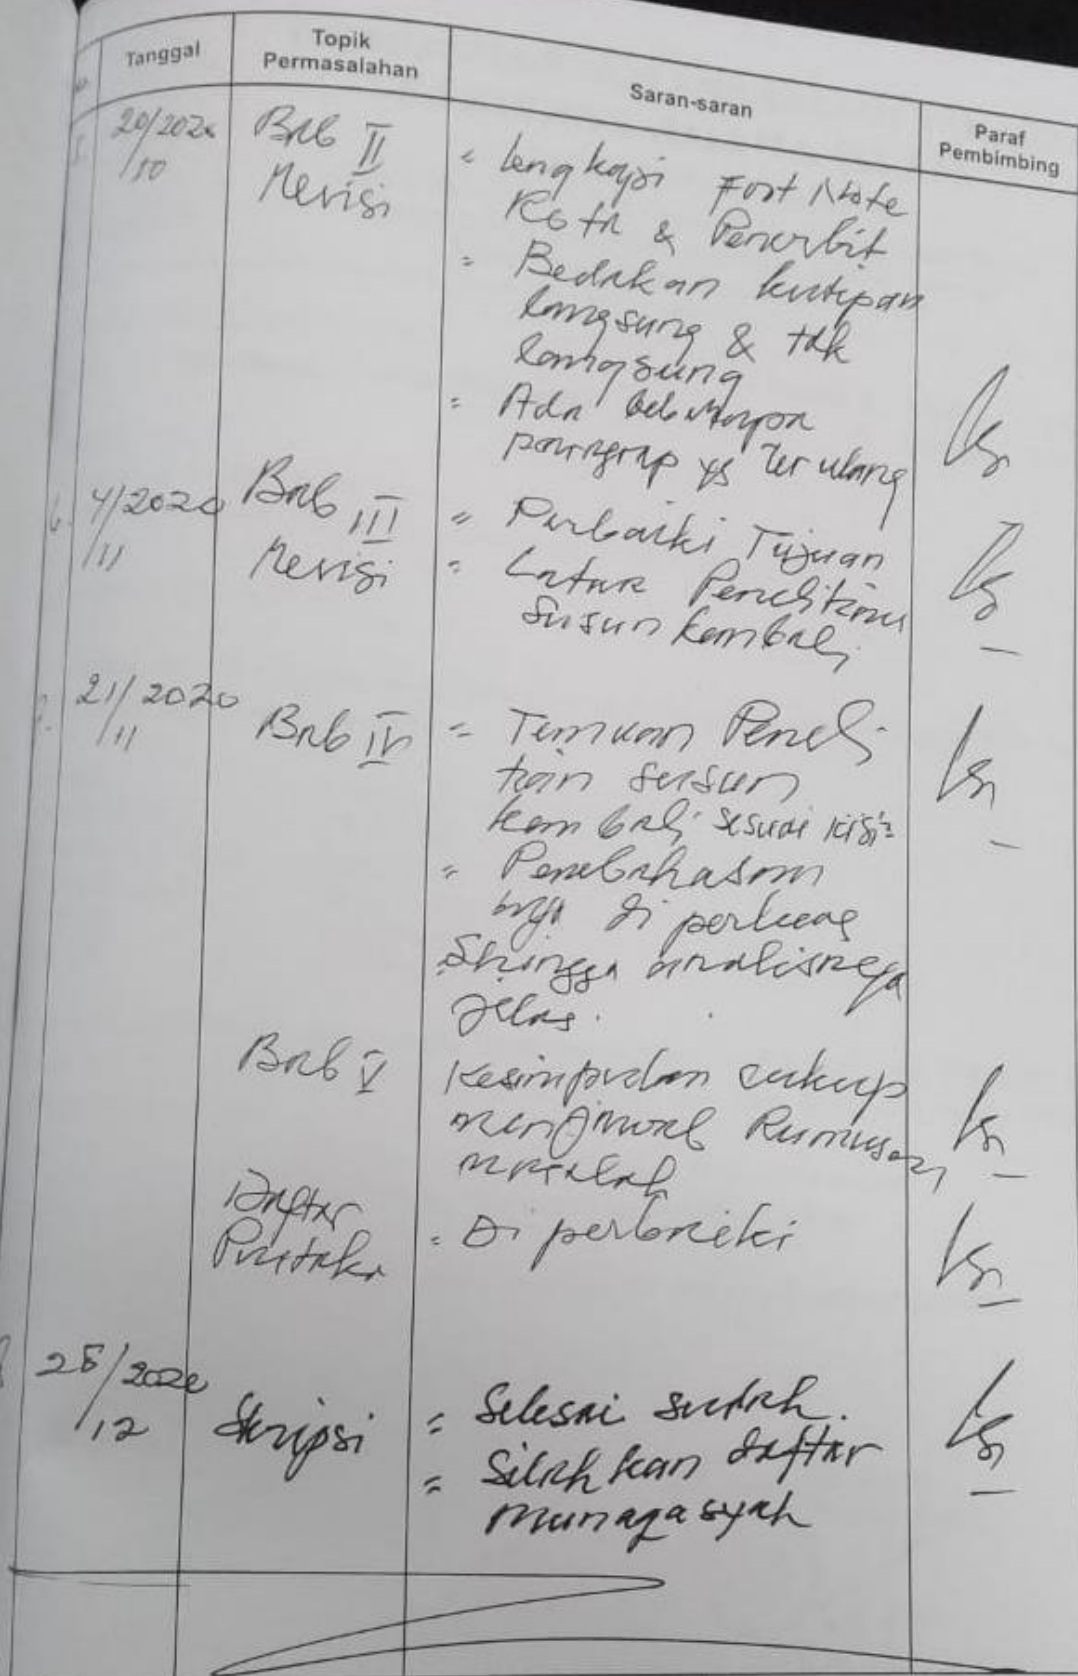 Tanggal
Topik
Permasalahan
Saran-saran
Paraf
Pembimbing
20/2020
/10
Bab II
Revisi
= lengkapi Foot Note
Kota & Penerbit
= Bedakan kutipan
langsung & tdk
langsung
= Ada beberapa
paragrap yg Terulang
6. 4/2020
/11
Bab III
Revisi
= Perbaiki Tujuan
= Latar Penelitian
susun kembali
21/2020
/11
Bab IV
= Temuan Peneli
tian susun
kembali sesuai kisi²
= Pembahasan
nya di perluas
Shingga analisnya
jelas.
Bab V
Kesimpulan cukup
menjawab Rumusan
masalah
Daftar
Pustaka
= Di perbaiki
28/2020
/12
Skripsi
= Selesai sudah.
= Silahkan daftar
munaqasyah